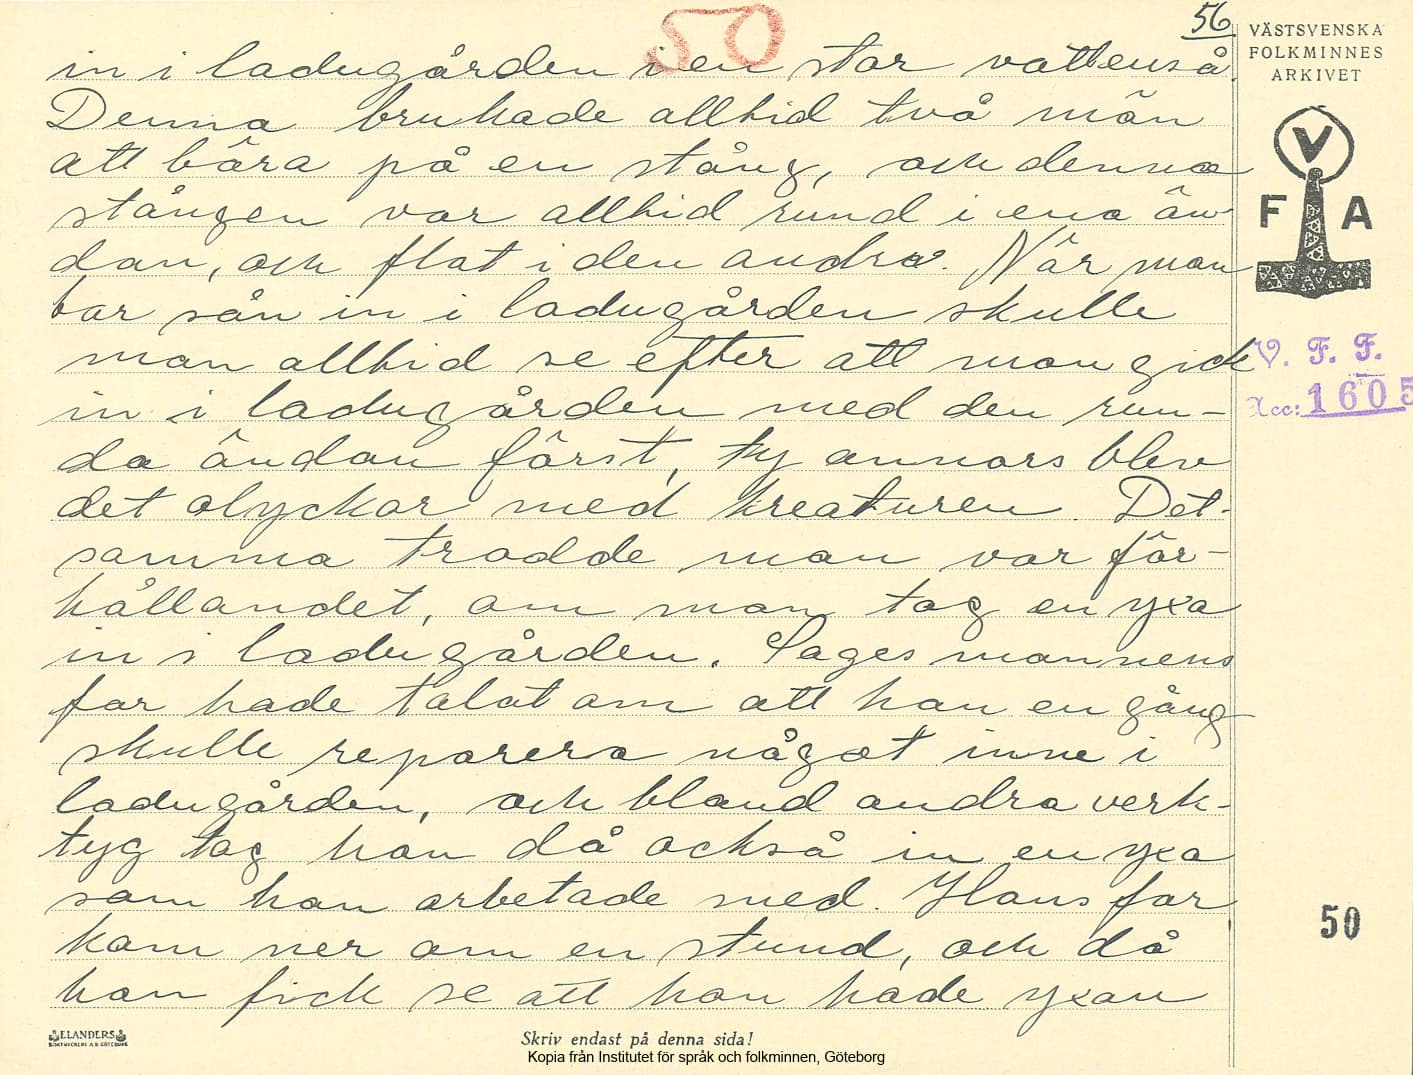 50
56
in i ladugården i en stor vattenså.
Denna brukade alltid två män
att bära på en stång, och denna
stången var alltid rund i ena än-
dan, och flat i den andra. När man
bar sån in i ladugården skulle
man alltid se efter att man gick
in i ladugården med den run-
da ändan först, ty annars blev
det olyckor med kreaturen. Det-
samma trodde man var för-
hållandet, om man tog en yxa
in i ladugården. Sagesmannens
far hade talat om att han en gång
skulle reparera något inne i
ladugården, och bland andra verk-
tyg tog han då också in en yxa
som han arbetade med. Hans far
kom ner om en stund, och då
han fick se att han hade yxan
VÄSTSVENSKA
FOLKMINNES
ARKIVET
V
F A
V. F. F.
Acc: 1605
50
ELANDERS
BOKTRYCKERI A.B. GÖTEBORG
Skriv endast på denna sida!
Kopia från Institutet för språk och folkminnen, Göteborg